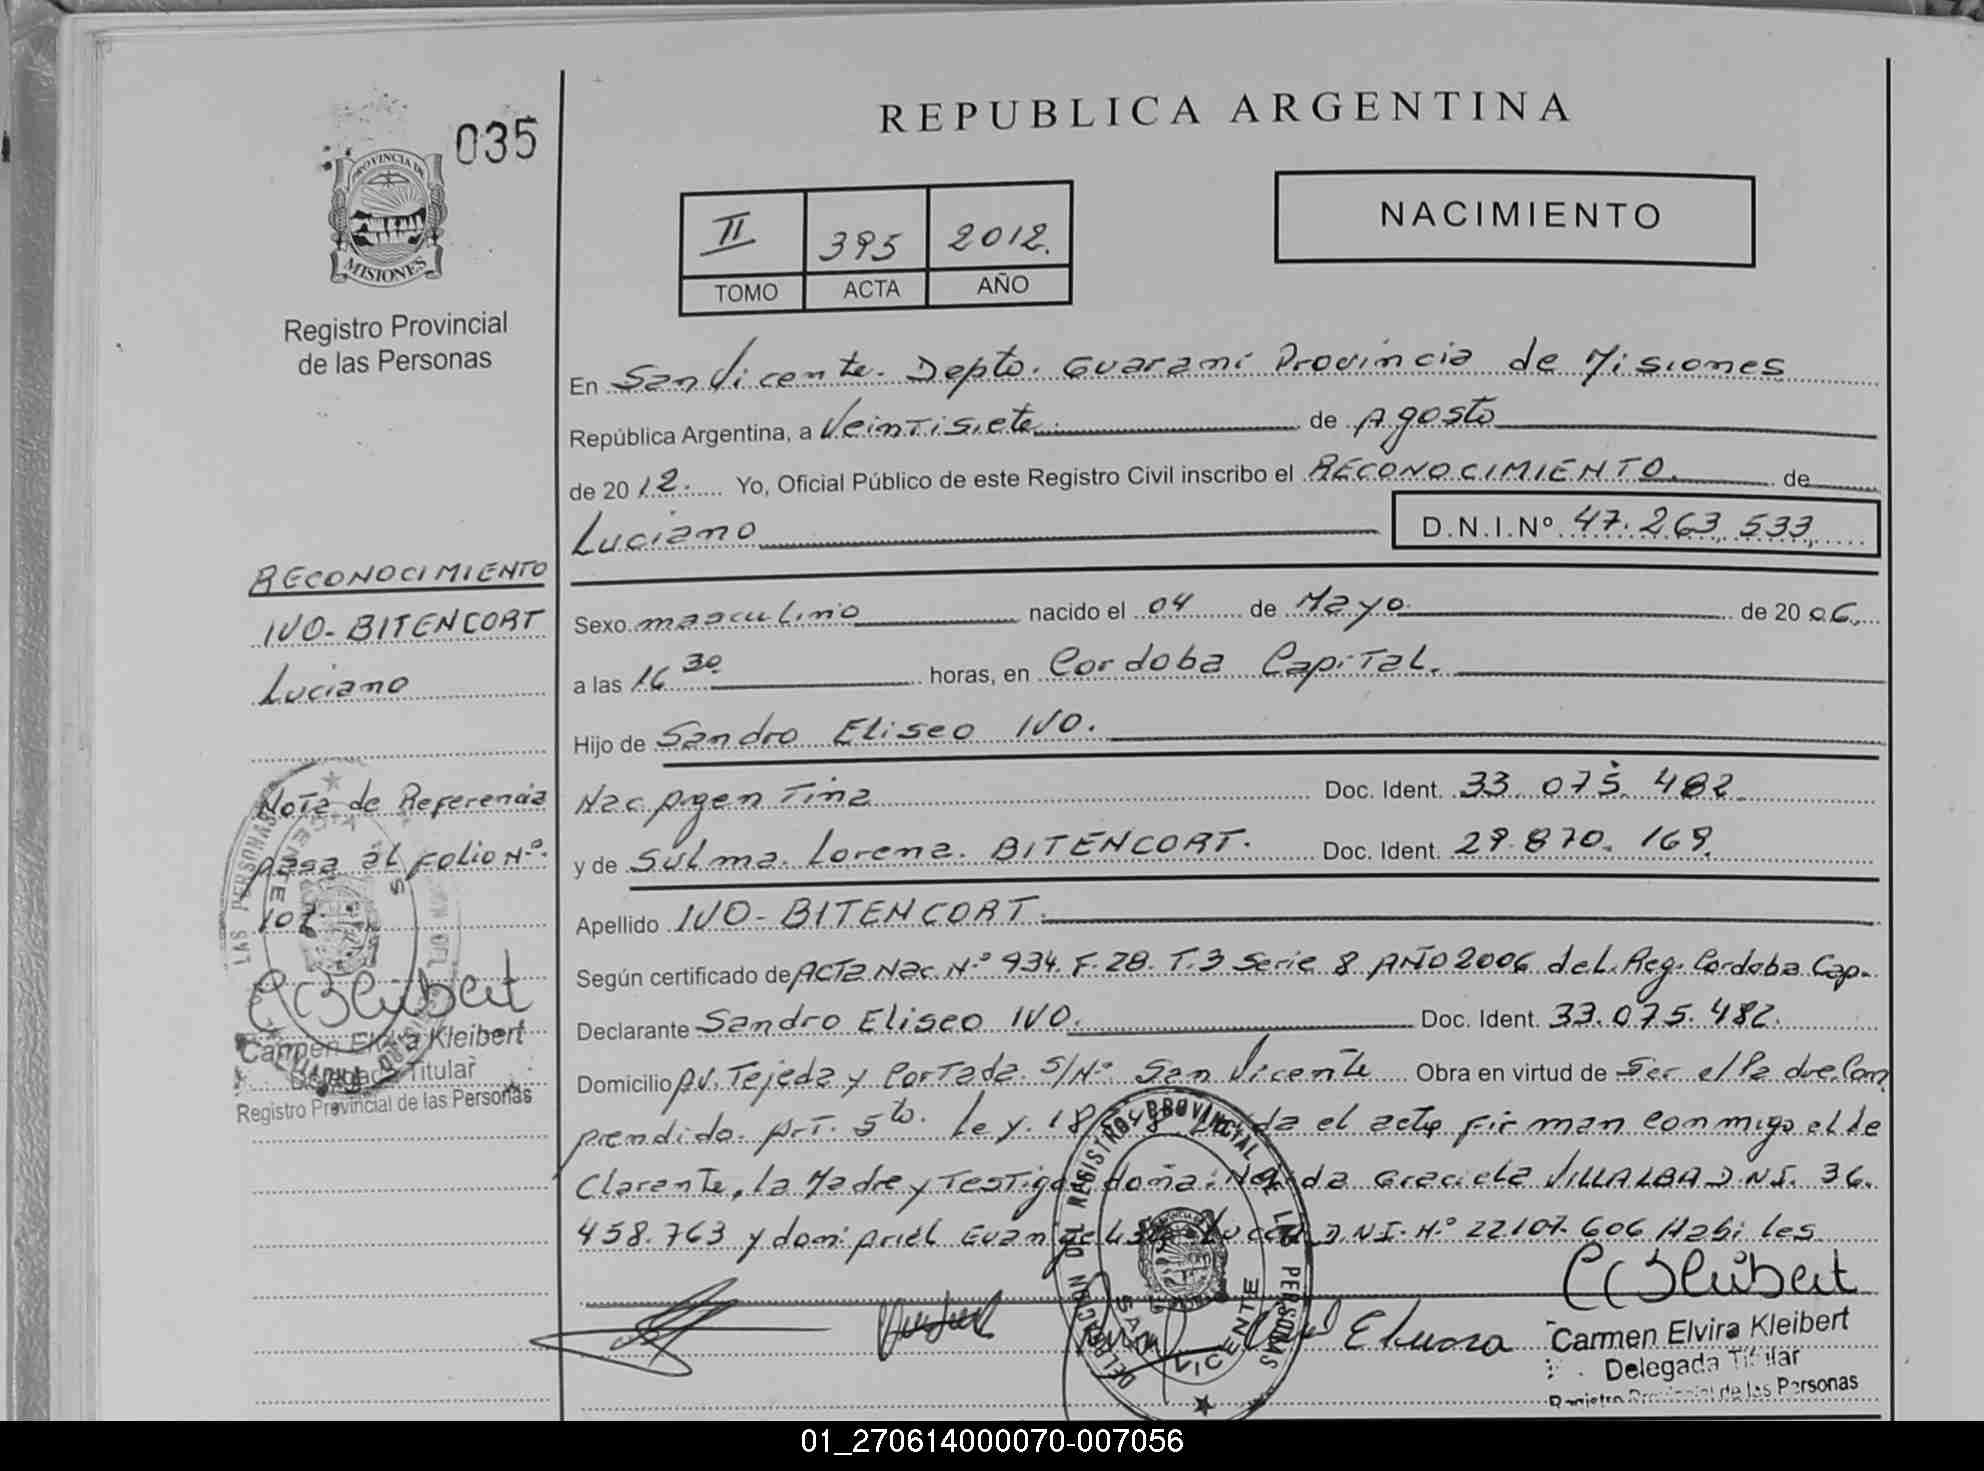 035
PROVINCIA DE
MISIONES
Registro Provincial
de las Personas
REPUBLICA ARGENTINA
II 395 2012.
TOMO ACTA AÑO
NACIMIENTO
En San Vicente. Depto. Guaraní Provincia de Misiones
República Argentina, a Veintisiete. de Agosto
de 2012. Yo, Oficial Público de este Registro Civil inscribo el RECONOCIMIENTO. de
Luciano D.N.I.Nº 47.263.533
Sexo masculino nacido el 04 de Mayo de 2006.
a las 16 30 horas, en Cordoba Capital.
Hijo de Sandro Eliseo IVO.
Nac Argentina Doc. Ident. 33 075. 482
y de Sulma. Lorena. BITENCORT. Doc. Ident. 29.870. 169.
Apellido IVO-BITENCORT.
Según certificado de ACTA Nac. N.º 934. F. 28. T.3 Serie 8 AÑO 2006 del. Reg. Cordoba Cap.
Declarante Sandro Eliseo IVO. Doc. Ident. 33.075.482.
Domicilio AV. Tejeda y Cortada. S/Nº San Vicente Obra en virtud de Ser el Padre. Com
prendido. Art. 5to. Ley. el acto firman conmigo el de
Clarante, la Madre y Testigos doña: Graciela VILLALBA D.N.I. 36.
458.763 y don: Ariel D.N.I. N.º 22107.606 Habiles
RECONOCIMIENTO
IVO-BITENCORT
Luciano
Nota de Referencia
pasa al folio Nº.
107
Carmen Elvira Kleibert
Delegada Titular
Registro Provincial de las Personas
DELEGACION DEL REGISTRO PROVINCIAL DE LAS PERSONAS
SAN VICENTE
Carmen Elvira Kleibert
Delegada Titular
Registro Provincial de las Personas
01_270614000070-007056